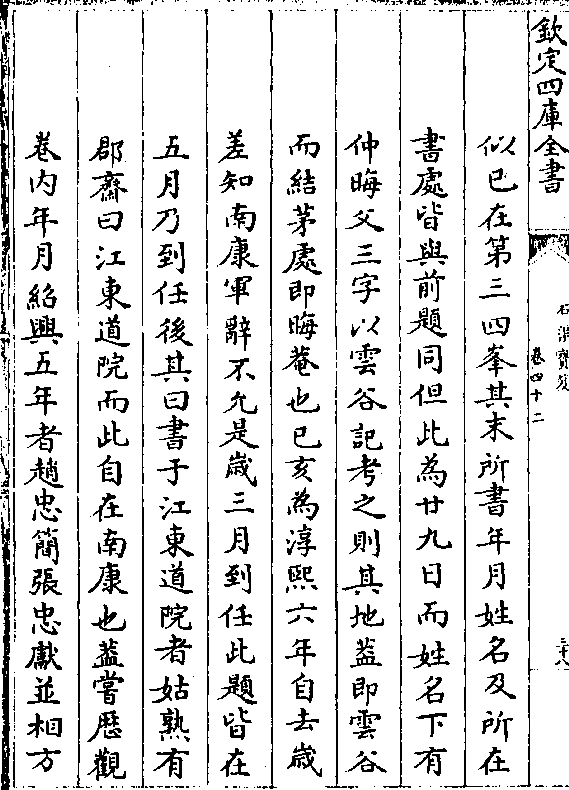 欽定四庫全書
石渠寶笈
卷四十二
三十八
似已在第三四峯其末所書年月姓名及所在
書處皆與前題同但此為廿九日而姓名下有
仲晦父三字以雲谷記考之則其地葢即雲谷
而結茅處即晦菴也己亥為淳熙六年自去歲
差知南康軍辭不允是歲三月到任此題皆在
五月乃到任後其曰書于江東道院者姑熟有
郡齋曰江東道院而此自在南康也葢嘗歷觀
卷内年月紹興五年者趙忠簡張忠獻並相方